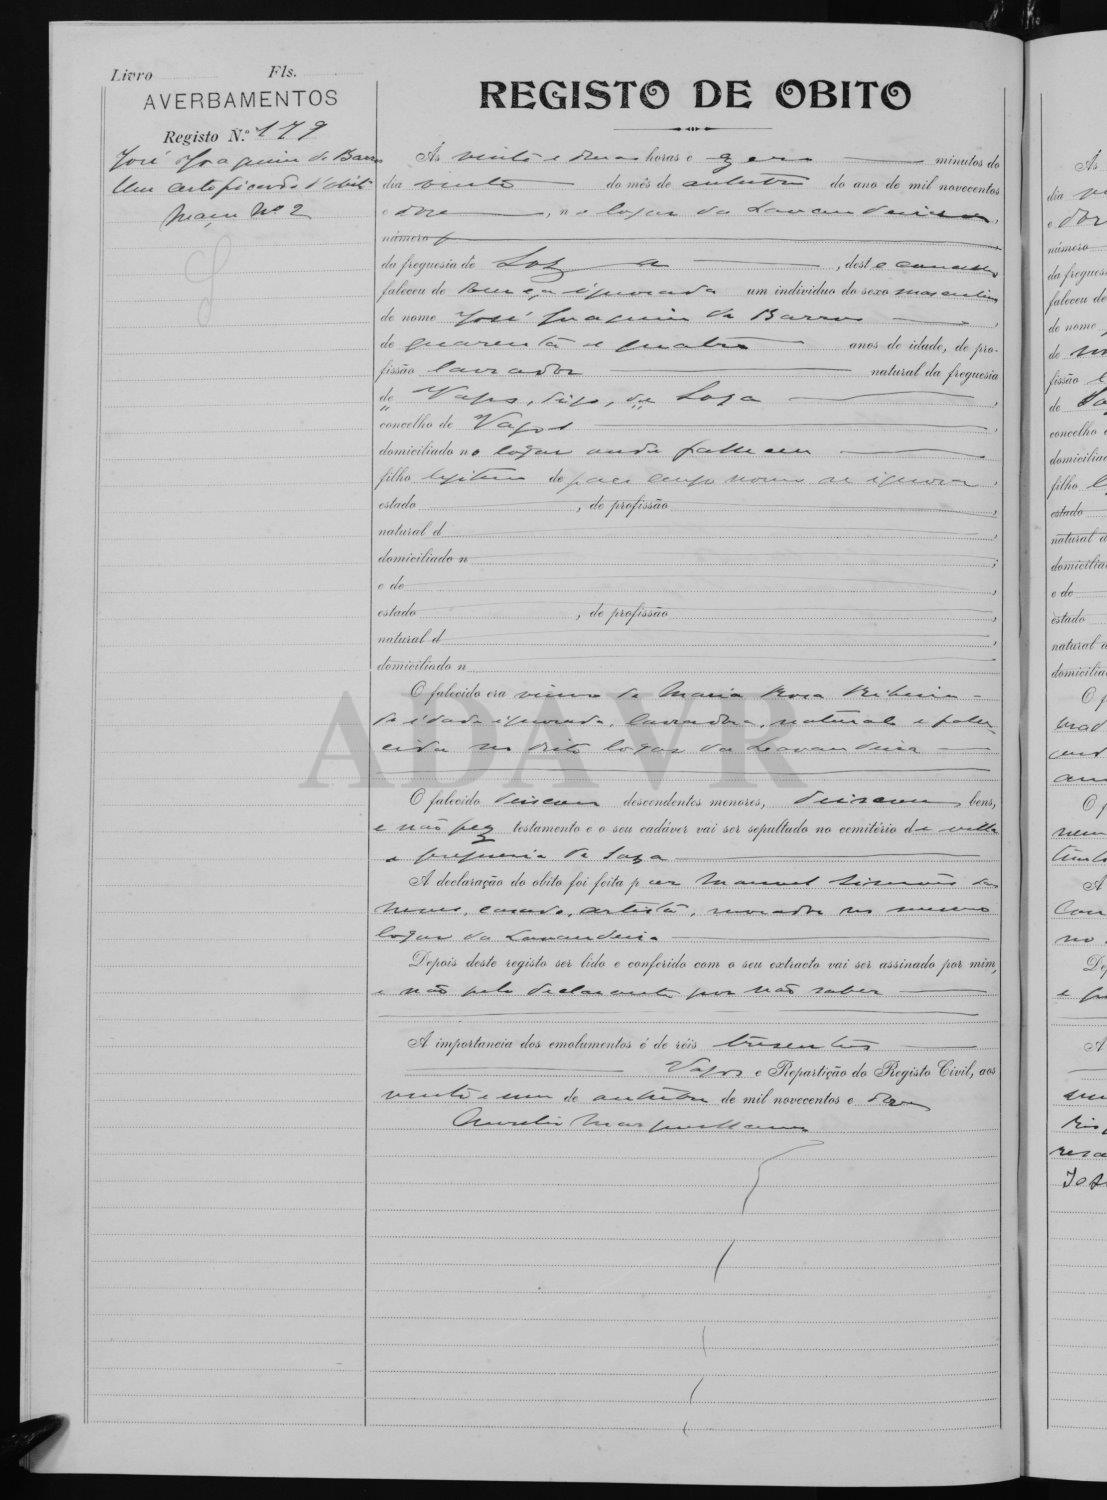 Livro Fls.
AVERBAMENTOS
Registo N.º 179
José Joaquim de Barros
Um certificado d'obito
Maço Nº 2
REGISTO DE OBITO
Ás vinte e duas horas e zero minutos do
dia vinte do mês de outubro do ano de mil novecentos
e doze, no logar da Lavandeira,
número
da freguesia de Soza, deste concelho
faleceu de doença ignorada um individuo do sexo masculino
de nome José Joaquim de Barros,
de quarenta e quatro anos de idade, de pro-
fissão lavrador natural da freguesia
de Vagos, digo, de Soza,
concelho de Vagos,
domiciliado no logar onde falleceu
filho legitimo de paes cujo nome se ignora,
estado , de profissão ,
natural d ,
domiciliado n ;
e de ,
estado , de profissão ,
natural d ,
domiciliado n
O falecido era viuvo de Maria Rosa Ribeiro
de idade ignorada, lavradora, natural e falle-
cida no dito logar da Lavandeira
O falecido deixou descendentes menores, deixou bens,
e não fez testamento e o seu cadáver vai ser sepultado no cemitério de
e freguesia de Soza
A declaração do obito foi feita por Manuel Simões das
Neves, casado, artista, morador no mesmo
logar da Lavandeira
Depois deste registo ser lido e conferido com o seu extracto vai ser assinado por mim,
e não pelo declarante por não saber
A importancia dos emolumentos é de réis tresentos
Vagos e Repartição do Registo Civil, aos
vinte e um de outubro de mil novecentos e doze
Aurelio Marques
ADAVR